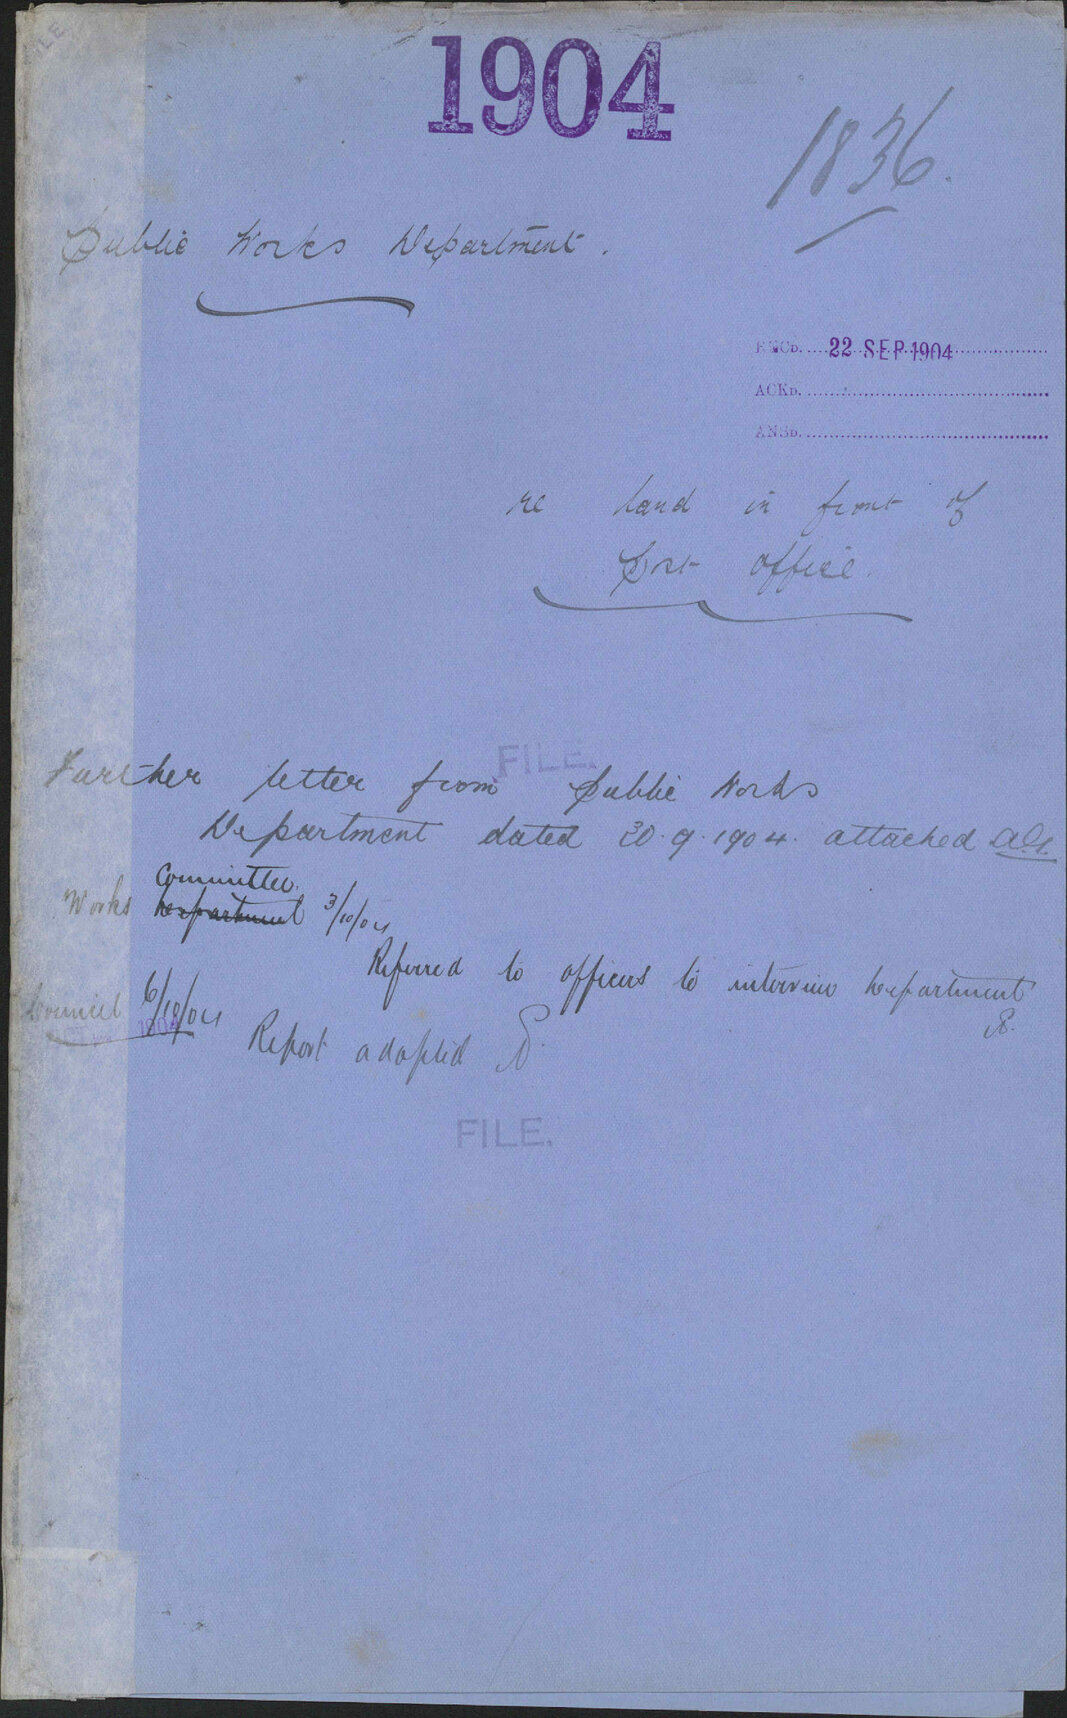 1904
1836.
Public Works Department.
RECD. 22 SEP 1904
ACKD.
ANSD.
re land in front of
Post Office.
FILE.
Further letter from Public Works
Department dated 30.9.1904. attached
Committee
Works Department 3/10/04
Referred to officers to interview Department
Council 6/10/04
1904
Report adopted
FILE.